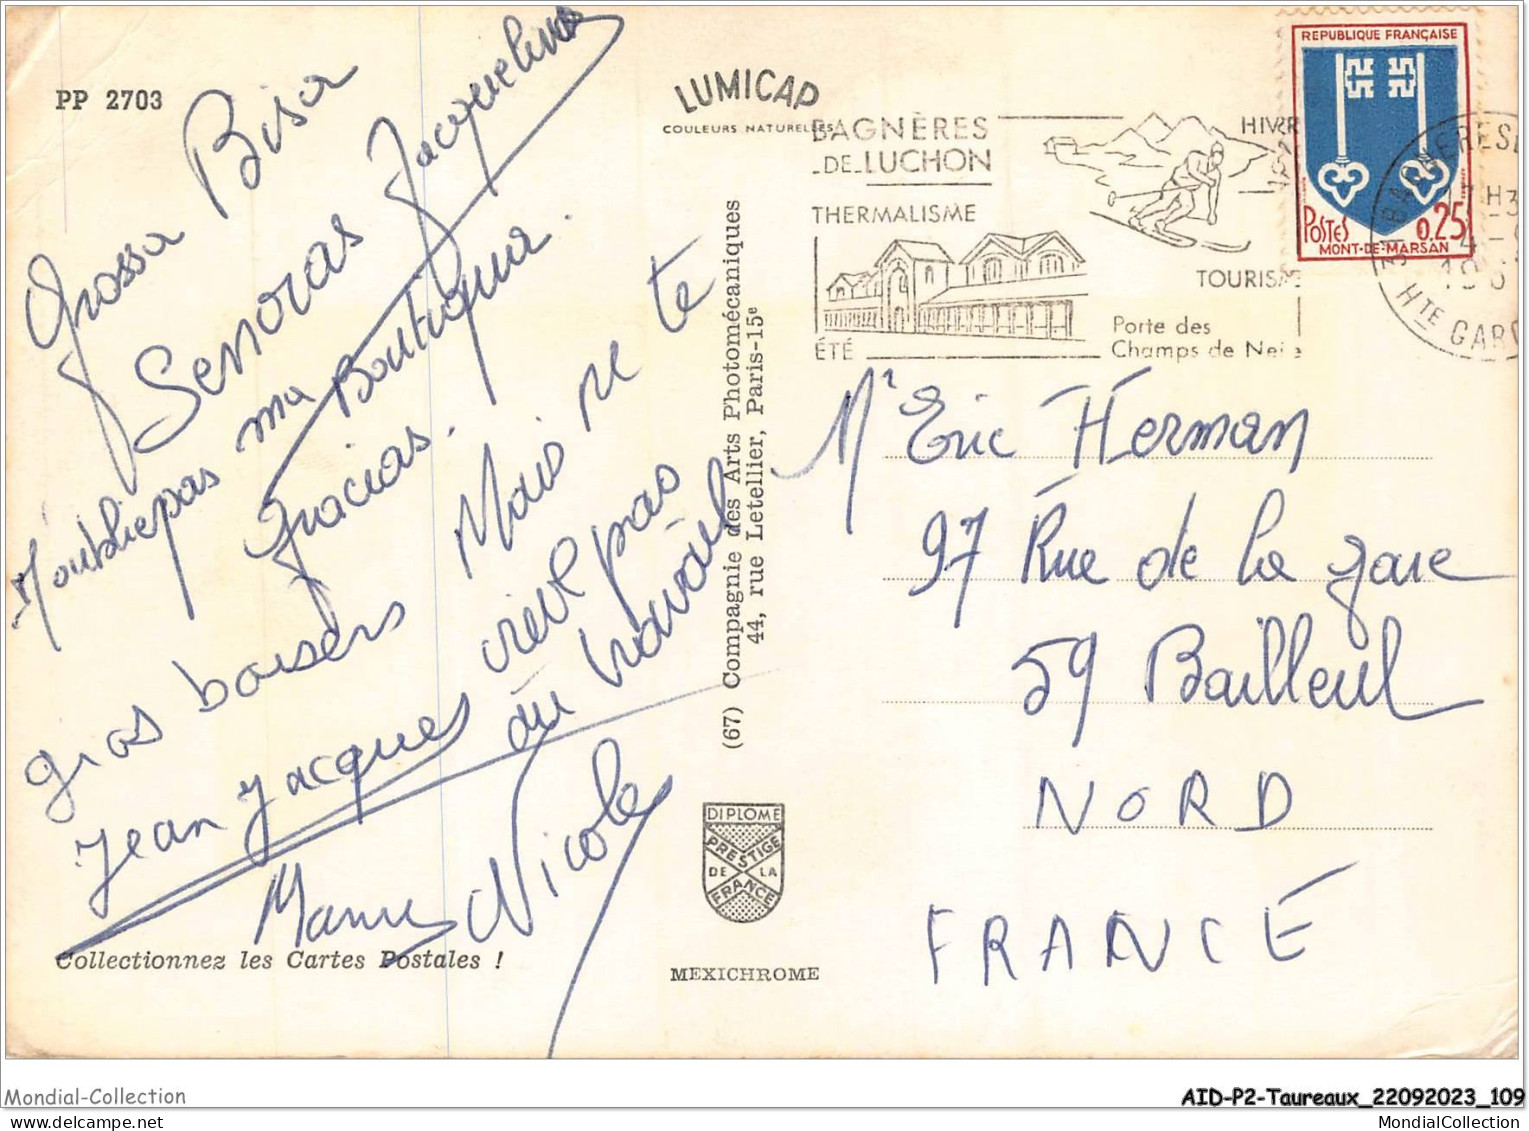 PP 2703
Grossa Bisa
Senoras Jacquelina
N'oublie pas ma Boutiqua.
Gracias.
gros baisers Mais ne te
Jean Jacques crève pas
au travail
Mamy Nicole
Collectionnez les Cartes Postales !
LUMICAP
COULEURS NATURELLES
(67) Compagnie des Arts Photomécaniques
44, rue Letellier, Paris-15e
DIPLOME
PRESTIGE
DE LA
FRANCE
MEXICHROME
BAGNÈRES
DE LUCHON
THERMALISME
ÉTÉ
HIVER
TOURISME
Porte des
Champs de Neige
REPUBLIQUE FRANÇAISE
POSTES 0.25
MONT-DE-MARSAN
HTE GAR
Mr Eric Herman
97 Rue de la gare
59 Bailleul
NORD
FRANCE
Mondial-Collection
AID-P2-Taureaux_22092023_109
MondialCollection